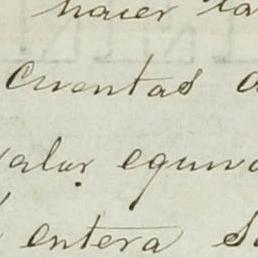 hacer la
cuentas
valor equiva
entera